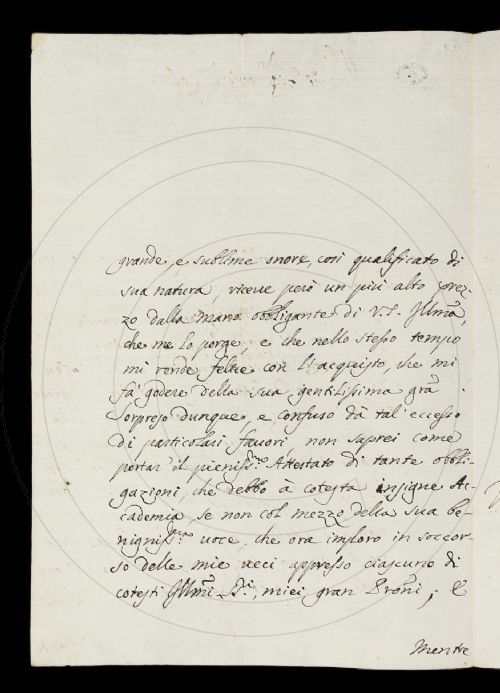 grande, e sublime onore, così qualificato di
sua natura, riceve però un più alto prez-
zo dalla mano obbligante di V.S. Illma,
che me lo porge, e che nello stesso tempo
mi rende felice con l'acquisto, che mi
fà godere della sua gentilissima gra
Sorpreso dunque, e confuso dà tal' eccesso
di particolari favori non saprei come
portar' il pieniss.mo Attestato di tante obbli-
gazioni, che debbo à cotesta insigne Ac-
cademia, se non col mezzo della sua be-
nigniss.ma voce, che ora imploro in soccor-
so delle mie veci appresso ciascuno di
cotesti Illmi Sri, miei gran Proni; E
Mentre